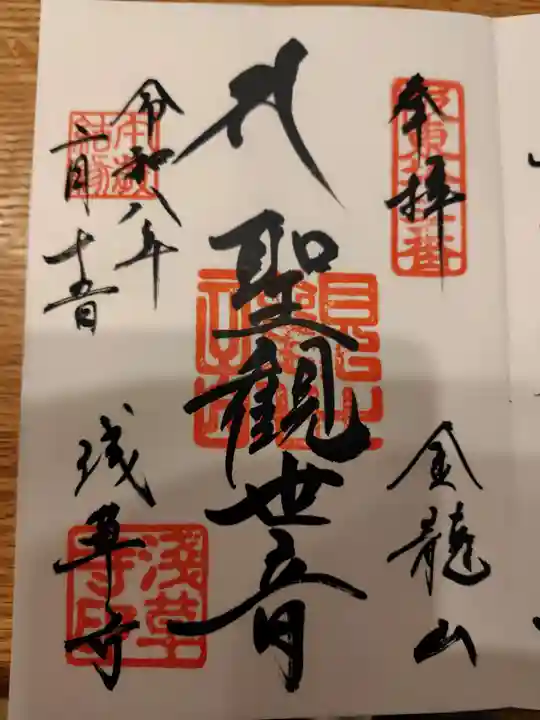 奉拝
坂東十三番
金龍山
聖觀世音
令和八年
二月十五日
浅草寺
浅草寺印